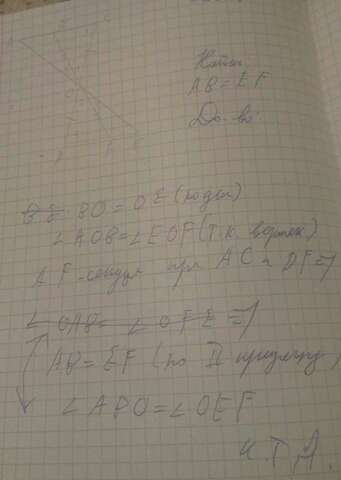 Найти
AB = EF
До-во:
BO = OE (
∠AOB = ∠EOF (т.к. вертик)
AF - секущ при AC и DF =>
∠OAB = ∠OFE =>
AB = EF (по II признаку)
∠ABO = ∠OEF
ч.т.д.